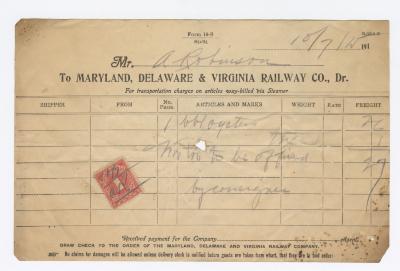 Form 14-S
10/7/15 191
Mr. A Robinson
To MARYLAND, DELAWARE & VIRGINIA RAILWAY CO., Dr.
For transportation charges on articles way-billed via Steamer
SHIPPER FROM No. Pkgs. ARTICLES AND MARKS WEIGHT RATE FREIGHT
1 bbl oysters
to be opened 29
by consignee
Received payment for the Company Agent.
DRAW CHECK TO THE ORDER OF THE MARYLAND, DELAWARE AND VIRGINIA RAILWAY COMPANY.
No claims for damages will be allowed unless delivery clerk is notified before goods are taken from wharf, that they are in bad order.